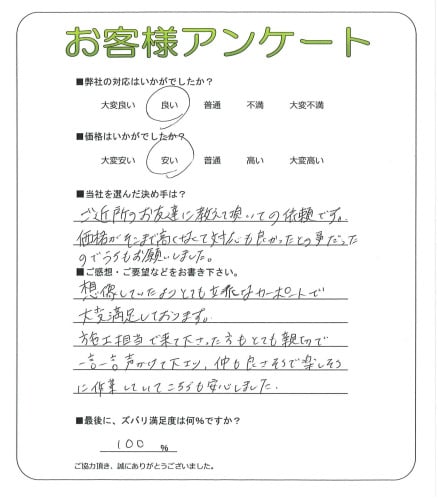 お客様アンケート
■弊社の対応はいかがでしたか?
大変良い 良い 普通 不満 大変不満
■価格はいかがでしたか?
大変安い 安い 普通 高い 大変高い
■当社を選んだ決め手は?
ご近所のお友達に教えて頂いての依頼です。
価格がそこまで高くなくて対応も良かったとの事だった
のでうちもお願いしました。
■ご感想・ご要望などをお書き下さい。
想像していたよりとても立派なカーポートで
大変満足しております。
施工担当で来て下さった方もとても親切で
一言一言声かけて下さり、仲も良さそうで楽しそう
に作業していてこちらも安心しました。
■最後に、ズバリ満足度は何%ですか?
100 %
ご協力頂き、誠にありがとうございました。